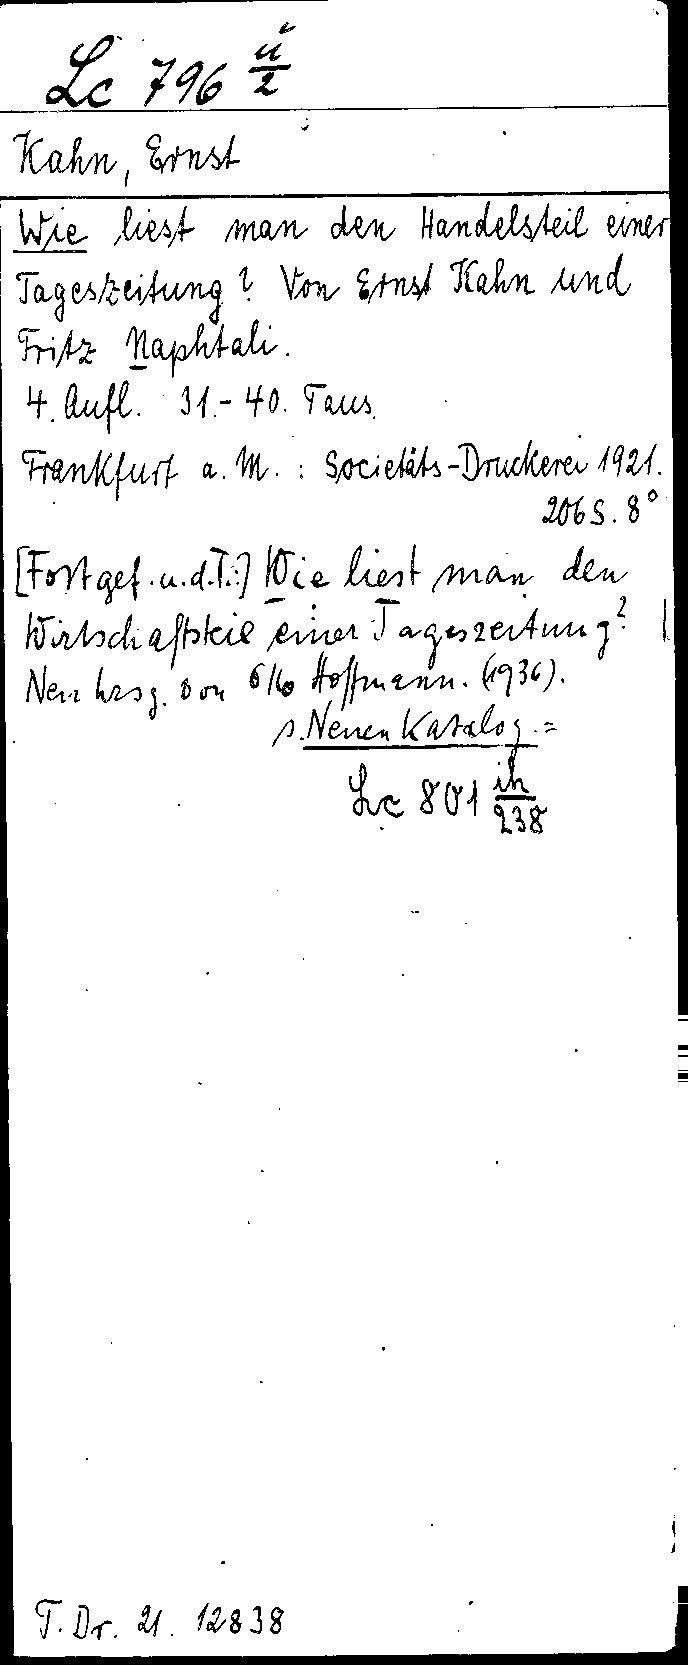 Lc 796 ü/2
Kahn, Ernst
Wie liest man den Handelsteil einer
Tageszeitung? Von Ernst Kahn und
Fritz Naphtali.
4. Aufl. 31.-40. Taus.
Frankfurt a. M. : Societäts-Druckerei 1921.
206 S. 8°
[Fortgef. u. d. T.:] Wie liest man den
Wirtschaftsteil einer Tageszeitung?
Neu hrsg. von Otto Hoffmann. (1936).
s. Neuen Katalog =
Lc 801 ih/238
T. Dr. 21. 12838